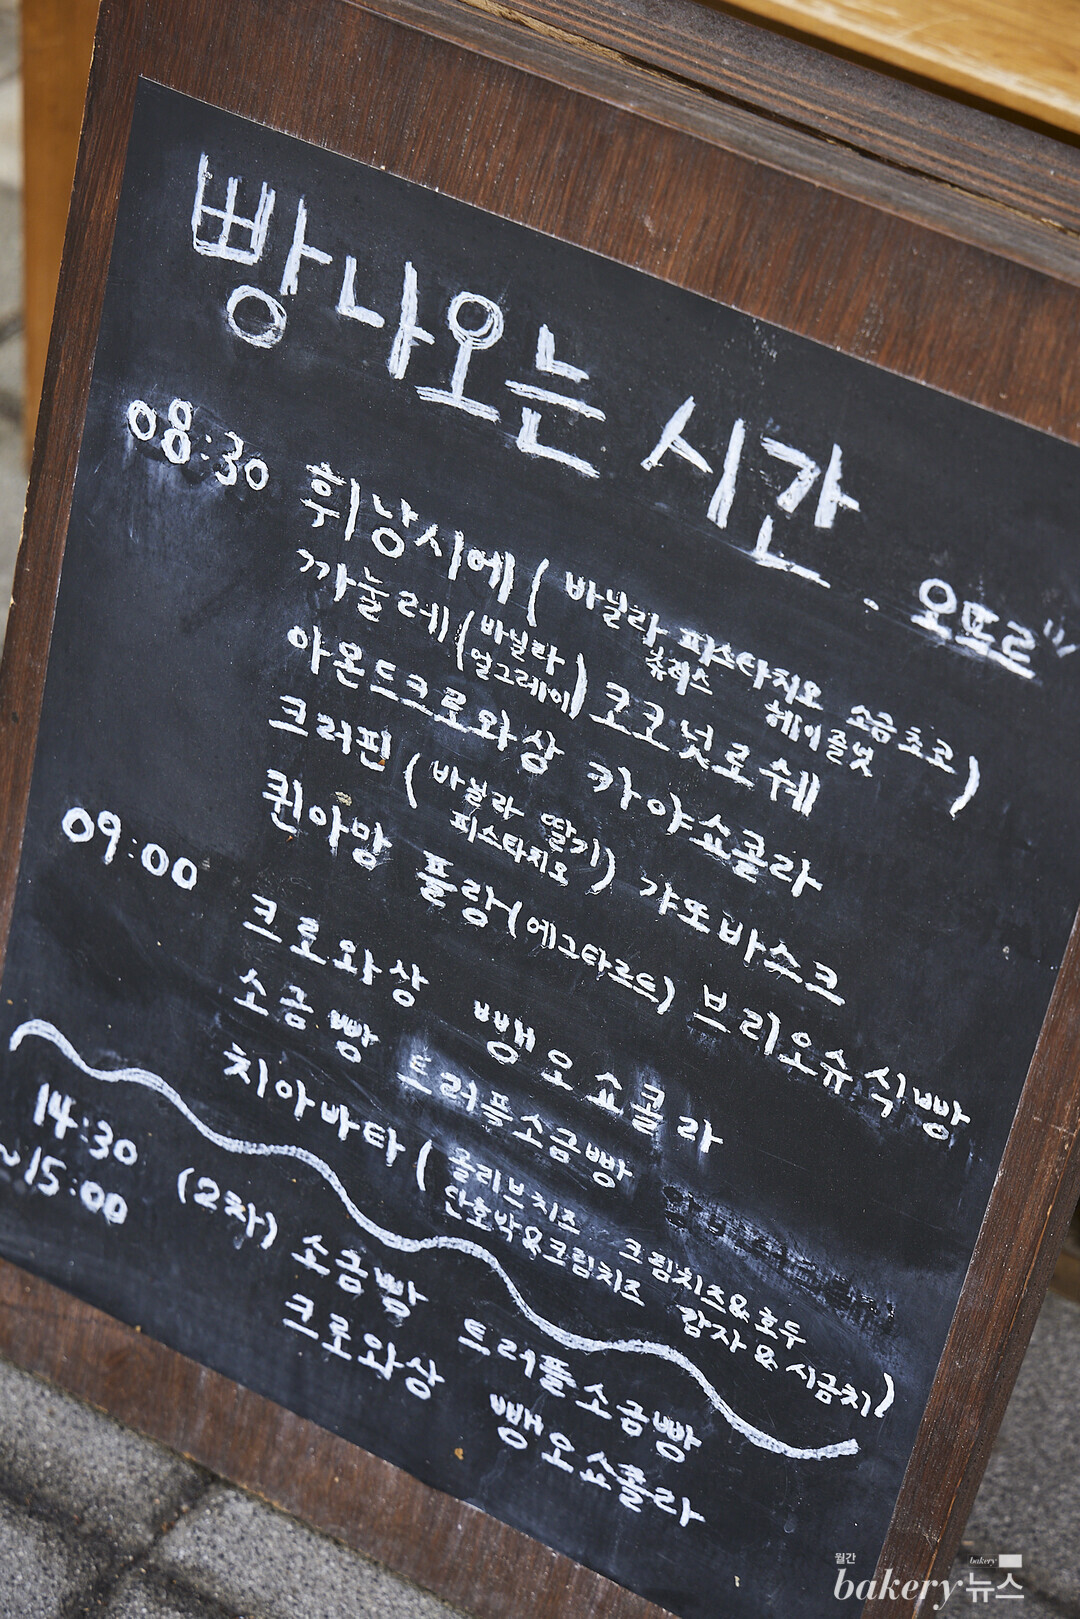 빵 나오는 시간. 오프르
08:30 휘낭시에 (바닐라 피스타치오 소금초코
츄러스 헤이즐넛)
까눌레 (바닐라
얼그레이) 코코넛로쉐
아몬드크로와상 카야쇼콜라
크러핀 (바닐라 딸기
피스타치오) 갸또바스크
퀸아망 플랑(에그타르트) 브리오슈식빵
09:00 크로와상 뺑오쇼콜라
소금빵 트러플소금빵
치아바타 (올리브치즈 크림치즈&호두
단호박&크림치즈 감자&시금치)
14:30
~15:00 (2차) 소금빵 트러플소금빵
크로와상 뺑오쇼콜라
월간 bakery
bakery 뉴스